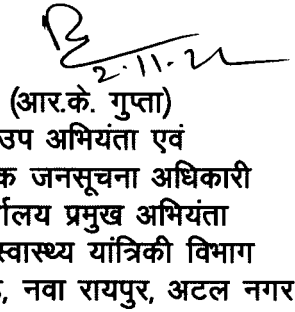 2.11.22
(आर.के. गुप्ता)
उप अभियंता एवं
क जनसूचना अधिकारी
र्यालय प्रमुख अभियंता
स्वास्थ्य यांत्रिकी विभाग
, नवा रायपुर, अटल नगर